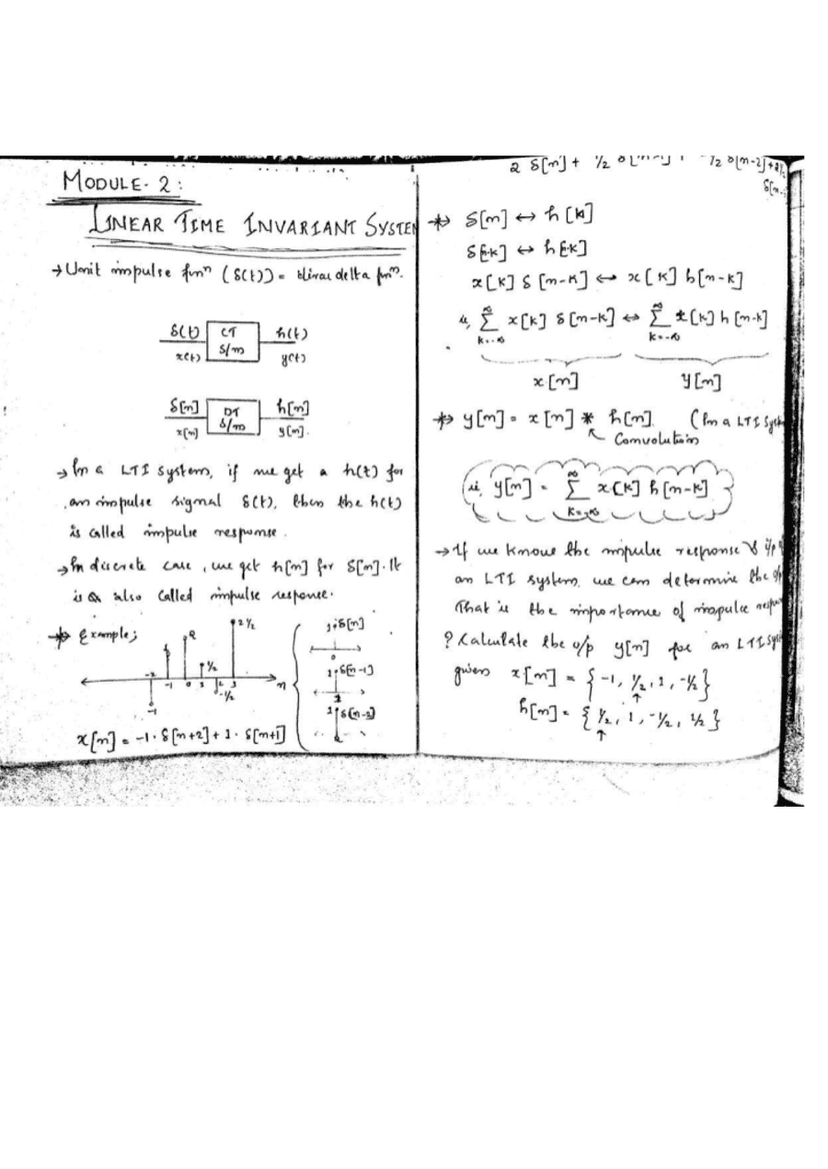 MODULE-2:
LINEAR TIME INVARIANT SYSTEM
→ Unit impulse funⁿ (δ(t)) = dirac delta funⁿ.
δ(t) CT h(t)
x(t) S/m y(t)
δ[n] DT h[n]
x[n] S/m y[n].
→ In a LTI system, if we get a h(t) for
an impulse signal δ(t), then the h(t)
is called impulse response.
→ In discrete case, we get h[n] for δ[n]. It
is also called impulse response.
Example;
2 1/2
2
1/2
-2 -1 0 1 2 3 n
-1/2
-1
1 δ[n]
0
1 δ[n-1]
1
1 δ[n-2]
2
x[n] = -1· δ[n+2] + 1· δ[n+1]
2 δ[n] + 1/2 δ[n-1] + -1/2 δ[n-2] +
δ[n-
δ[n] ↔ h[n]
δ[n-k] ↔ h[n-k]
x[k] δ[n-k] ↔ x[k] h[n-k]
ie, ∞∑k=-∞ x[k] δ[n-k] ↔ ∞∑k=-∞ x[k] h[n-k]
x[n] y[n]
y[n] = x[n] * h[n]. (In a LTI Syst
Convolution
ie, y[n] = ∞∑k=-∞ x[k] h[n-k]
→ If we know the impulse response & i/p of
an LTI system, we can determine the o/p
That is the importance of impulse respon
? Calculate the o/p y[n] for an LTI Syst
given x[n] = {-1, 1/2, 1, -1/2}
↑
h[n] = {1/2, 1, -1/2, 1/2}
↑